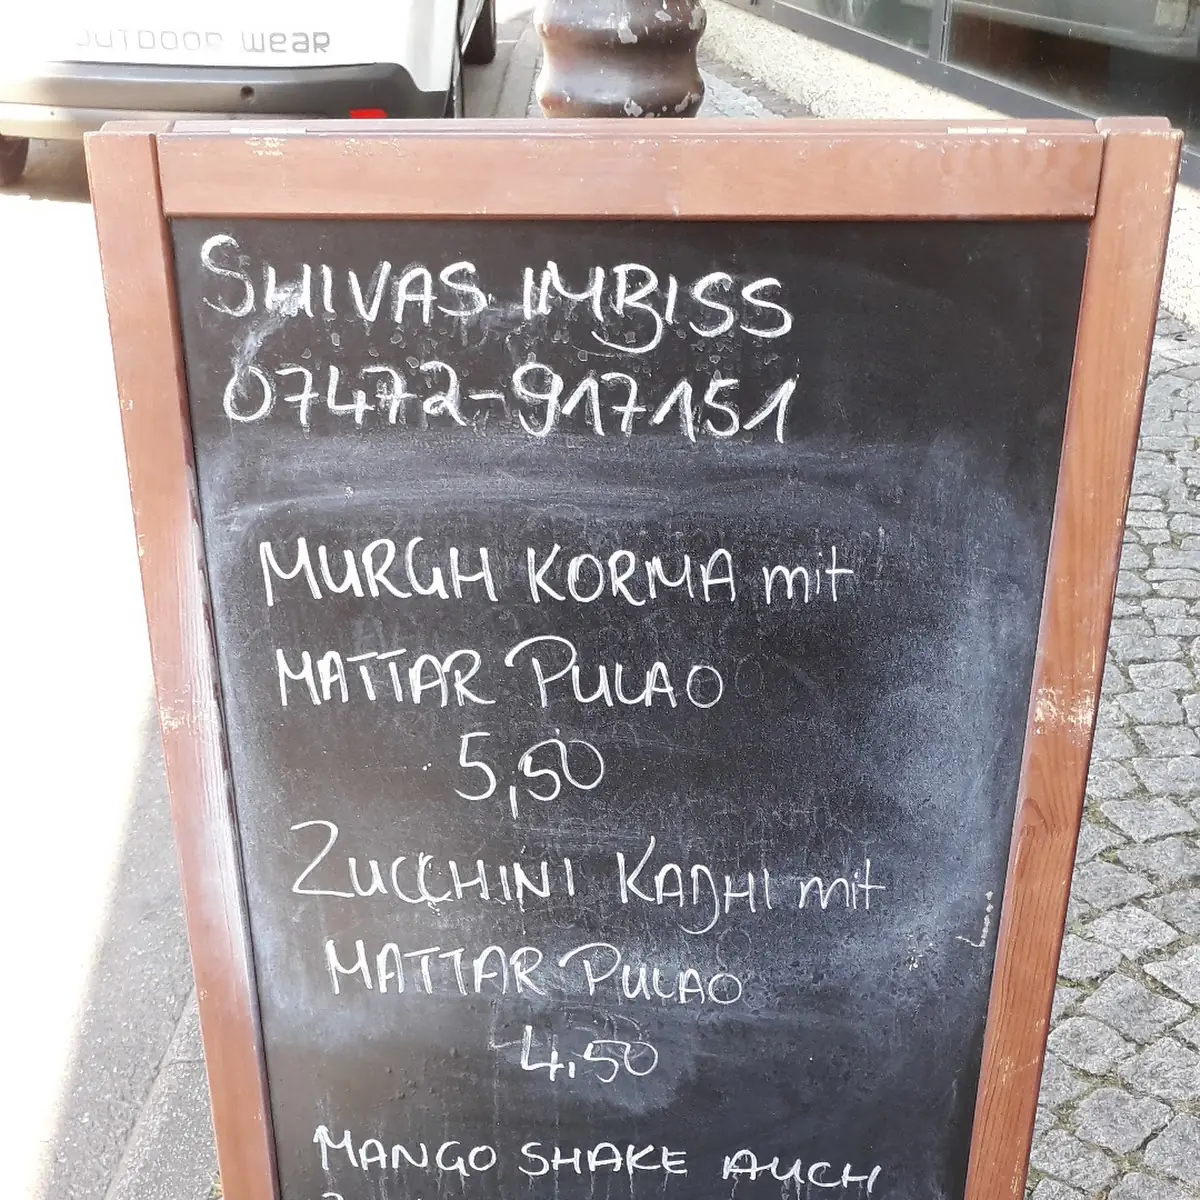 OUTDOOR WEAR
SHIVAS IMBISS
07472-917151
MURGH KORMA mit
MATTAR PULAO
5,50
ZUCCHINI KADHI mit
MATTAR PULAO
4,50
MANGO SHAKE AUCH